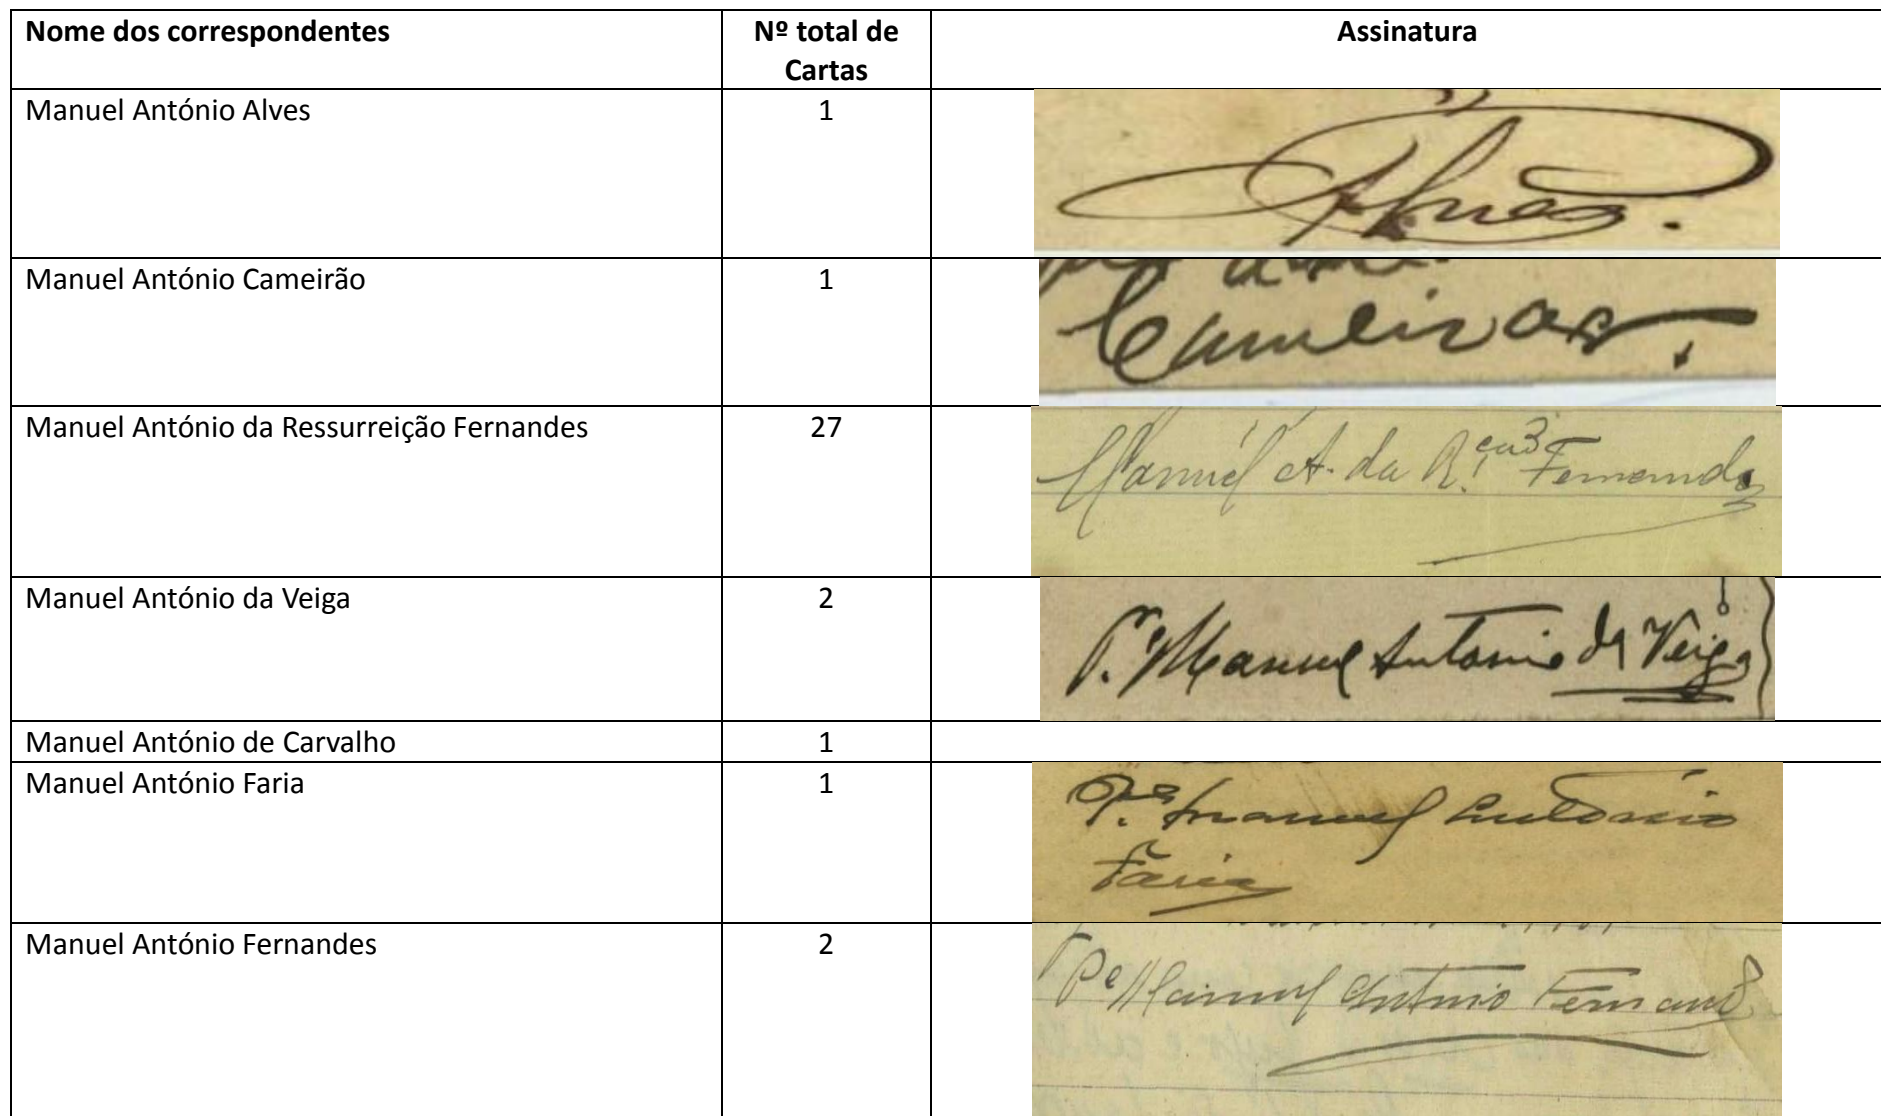 Nome dos correspondentes Nº total de Cartas Assinatura
Manuel António Alves 1
Alves.
Manuel António Cameirão 1
Cameirão.
Manuel António da Ressurreição Fernandes 27
Manuél A. da R. Fernandes
Manuel António da Veiga 2
P.e Manuel Antonio da Veiga
Manuel António de Carvalho 1
Manuel António Faria 1
P.e Manuel Antonio
Faria
Manuel António Fernandes 2
Pe Manuel Antonio Fernand